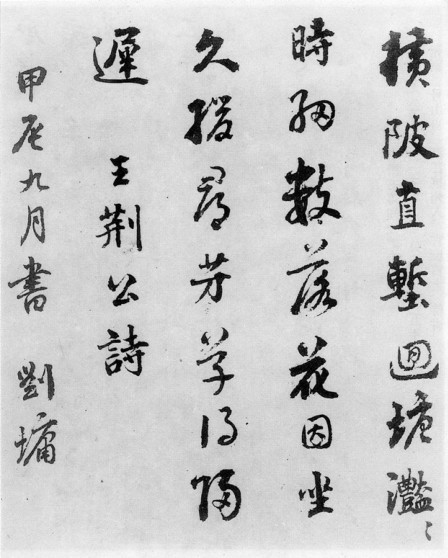 橫陂直塹迴塘灩〻
時細數落花因坐
久緩尋芳草得歸
遲 王荆公詩
甲辰九月書 劉墉